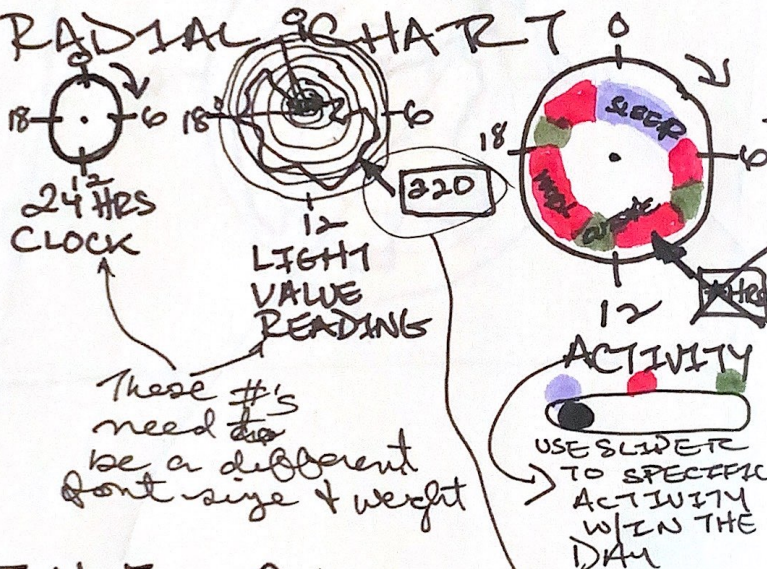 RADIAL CHART
0
18
6
12
24 HRS
CLOCK
0
18
6
12
220
LIGHT
VALUE
READING
These #'s
need to
be a different
font size & weight
0
18
6
12
SLEEP
HRS
ACTIVITY
USE SLIDER
TO SPECIFIC
ACTIVITY
W/IN THE
DAY